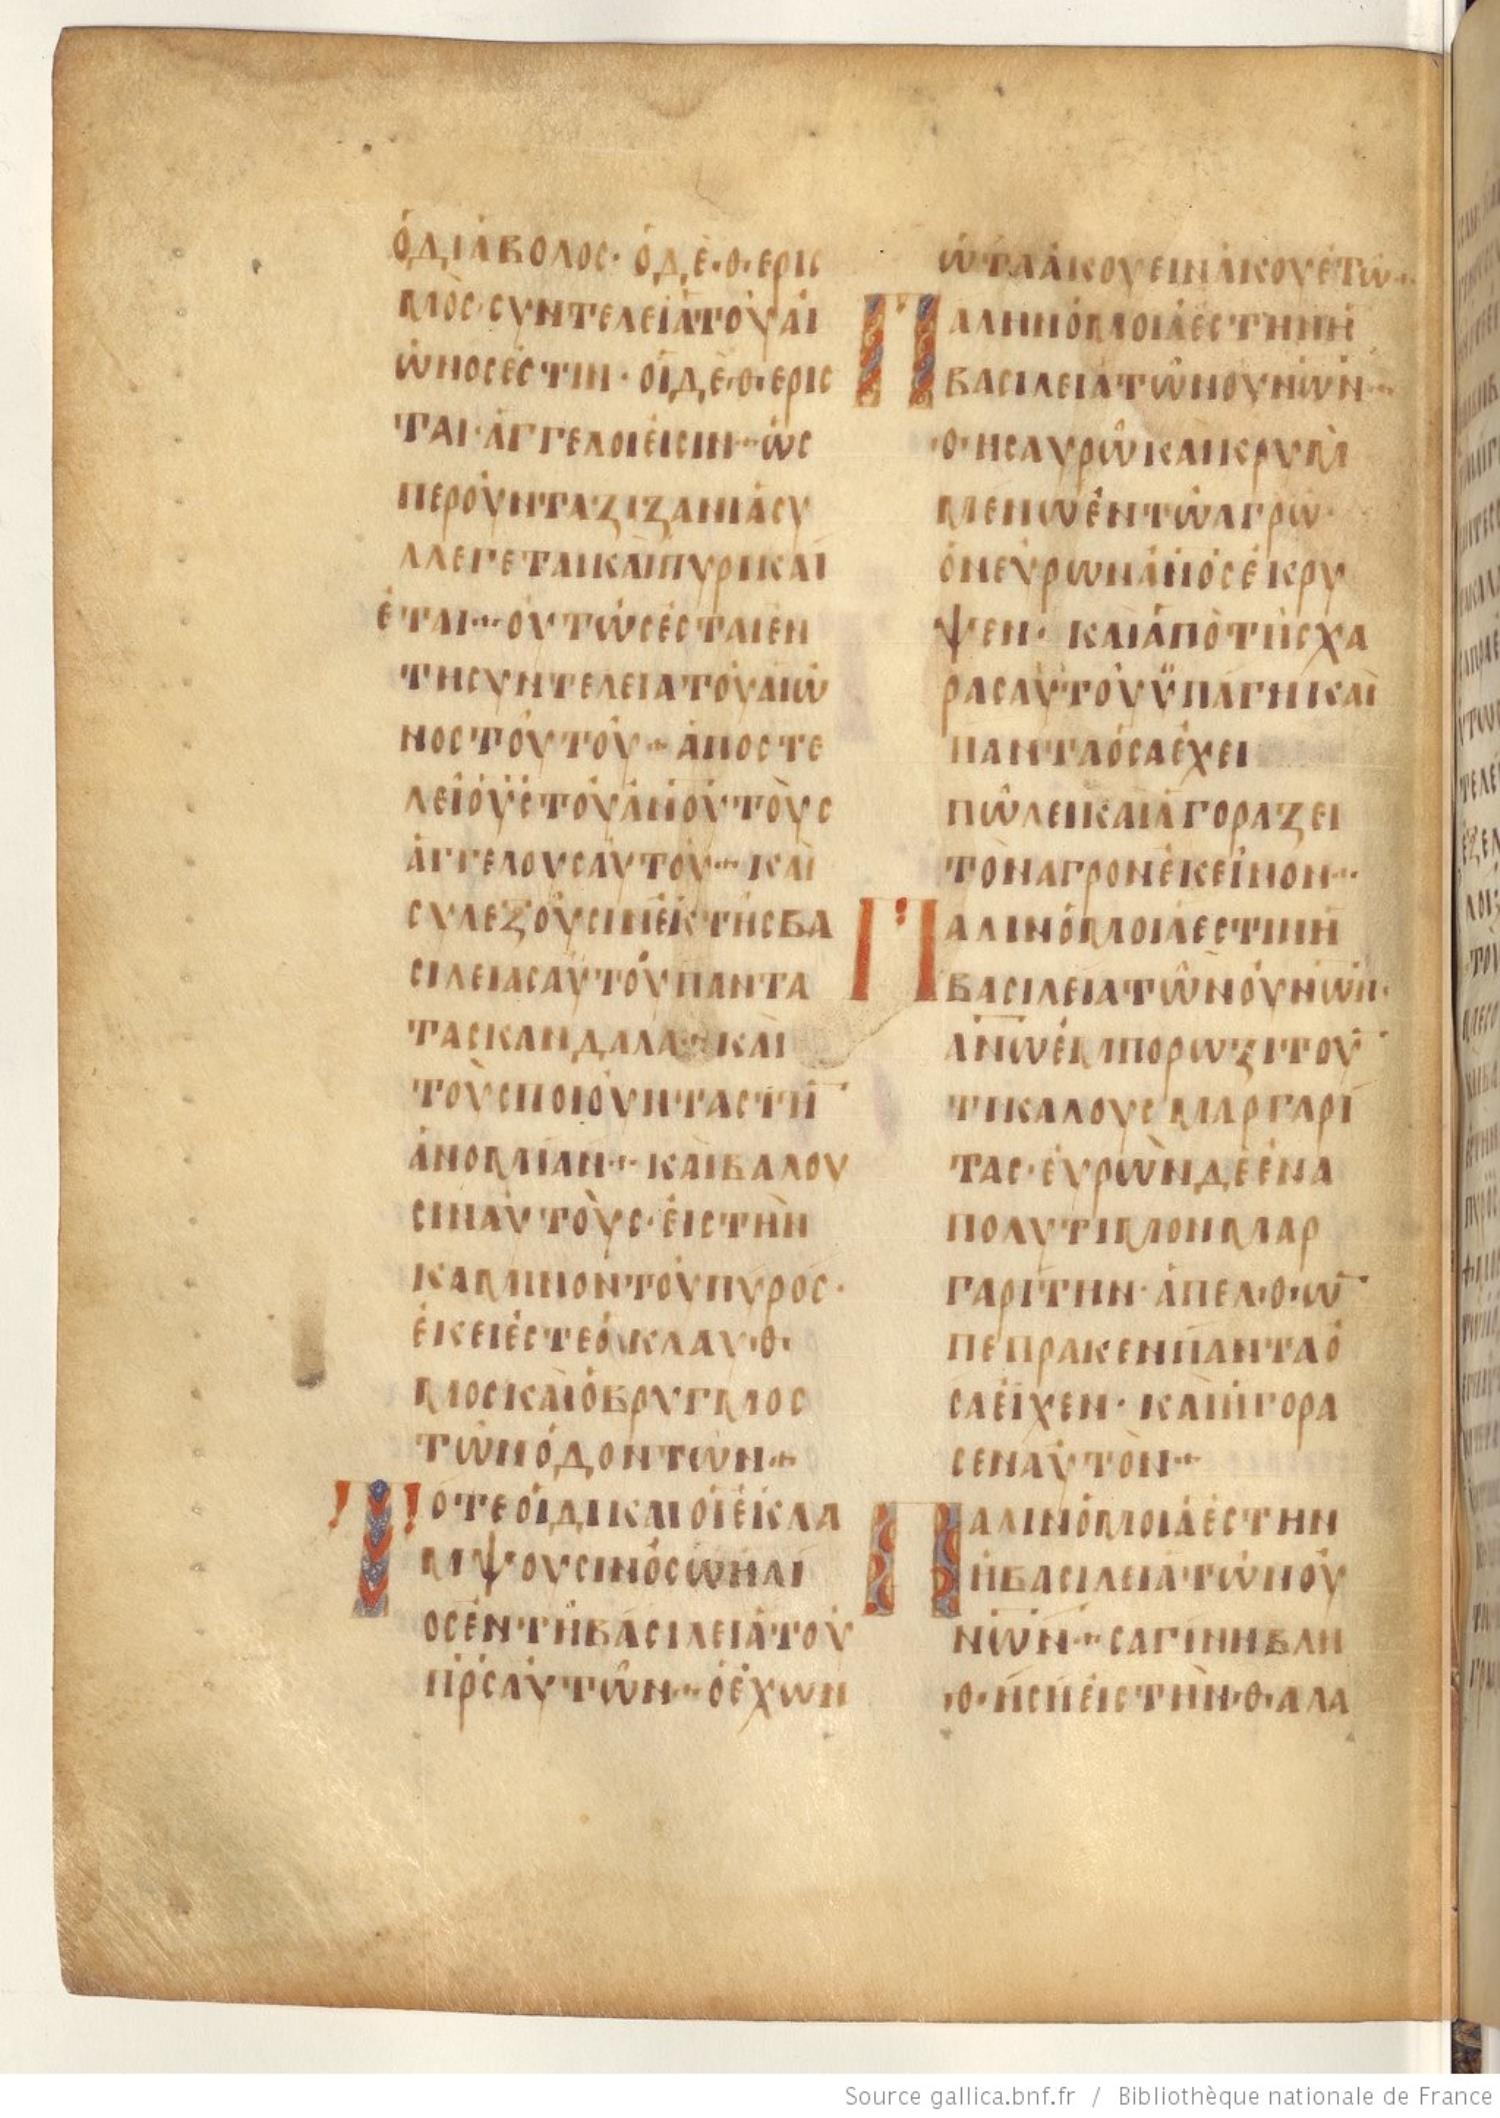 ὁδιάβολος· ὁδὲθερις
μὸς συντελεία τοῦ αἰ
ῶνος ἐστιν· οἱδὲθερις
ταὶ· ἄγγελοι εἰσιν·· ὡς
περ οὖν τα ζιζανιά συ
λλεγεται καὶ πυρὶ καὶ
έται·· οὑτώς ἐσται ἐν
τη συντελεια τοῦ αἰῶ
νος τούτου·· ἀποστε
λεῖ ὁ ῡς τοῦ ᾱνου τοὺς
ἀγγελους αὐτοῦ·· καὶ
συλεξουσιν ἐκ τῆς βα
σιλειας αὐτοῦ παντα
τα σκανδαλα·· καὶ
τοὺς ποιουντας τὴ̄
ἀνομίαν·· καὶ βαλου
σιν αὐτοὺς· εἰς τὴν
καμινον τοῦ πυρος·
ἐκει ἐστε ὁ κλαυθ
μος καὶ ὁ βρυγμος
τῶν ὁδοντων··
Τότε οἱ δικαιοι ἐκλα
μψουσιν ὁς ω ἡλι
ος ἐν τῆ βασιλεια τοῦ
π̄ρς αὐτῶν·· ὁ ἐχων
ὠτα ἀκουειν ἀκουέτω··
Παλην ὁμοιά ἐστην ἡ
βασιλεια τῶν οὐν̄ων··
θησαυρῶ καὶ κρυμ
μενω ἐν τῶ αγρω·
ὁν εὑρων ᾱνος ἐκρυ
ψεν· καὶ ἀπὸ τῆς χα
ρας αὐτοῦ ὑπάγη καὶ
παντα ὁσα ἐχει
πῶλει καὶ ἀγοραζει
τὸν αγρον ἐκεῖνον··
Παλιν ὁμοιά εστιν ἡ
βασιλεία τῶν οὐν̄ων·
ᾱνω ἐμπορω ζιτοῦ̄
τι καλους μαργαρί
τας· εὑρὼν δὲ ἐνα
πολυτιμον μαρ
γαρίτην· ἀπελθω̄
πεπρακεν παντα ὁ
σα εἶχεν· καὶ ἠγορα
σεν αὐτὸν··
Παλιν ὁμοιά ἐστην
ἡ βασιλεια τῶν οὐ
ν̄ων·· σαγινη βλη
θησῆ εἰς τὴν θαλα